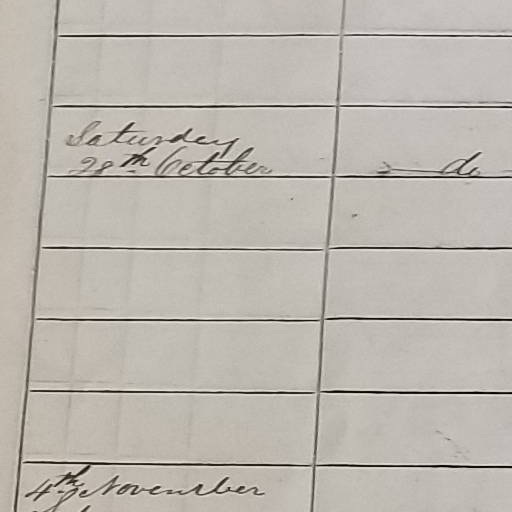 Saturday
28th October — do —
4th November